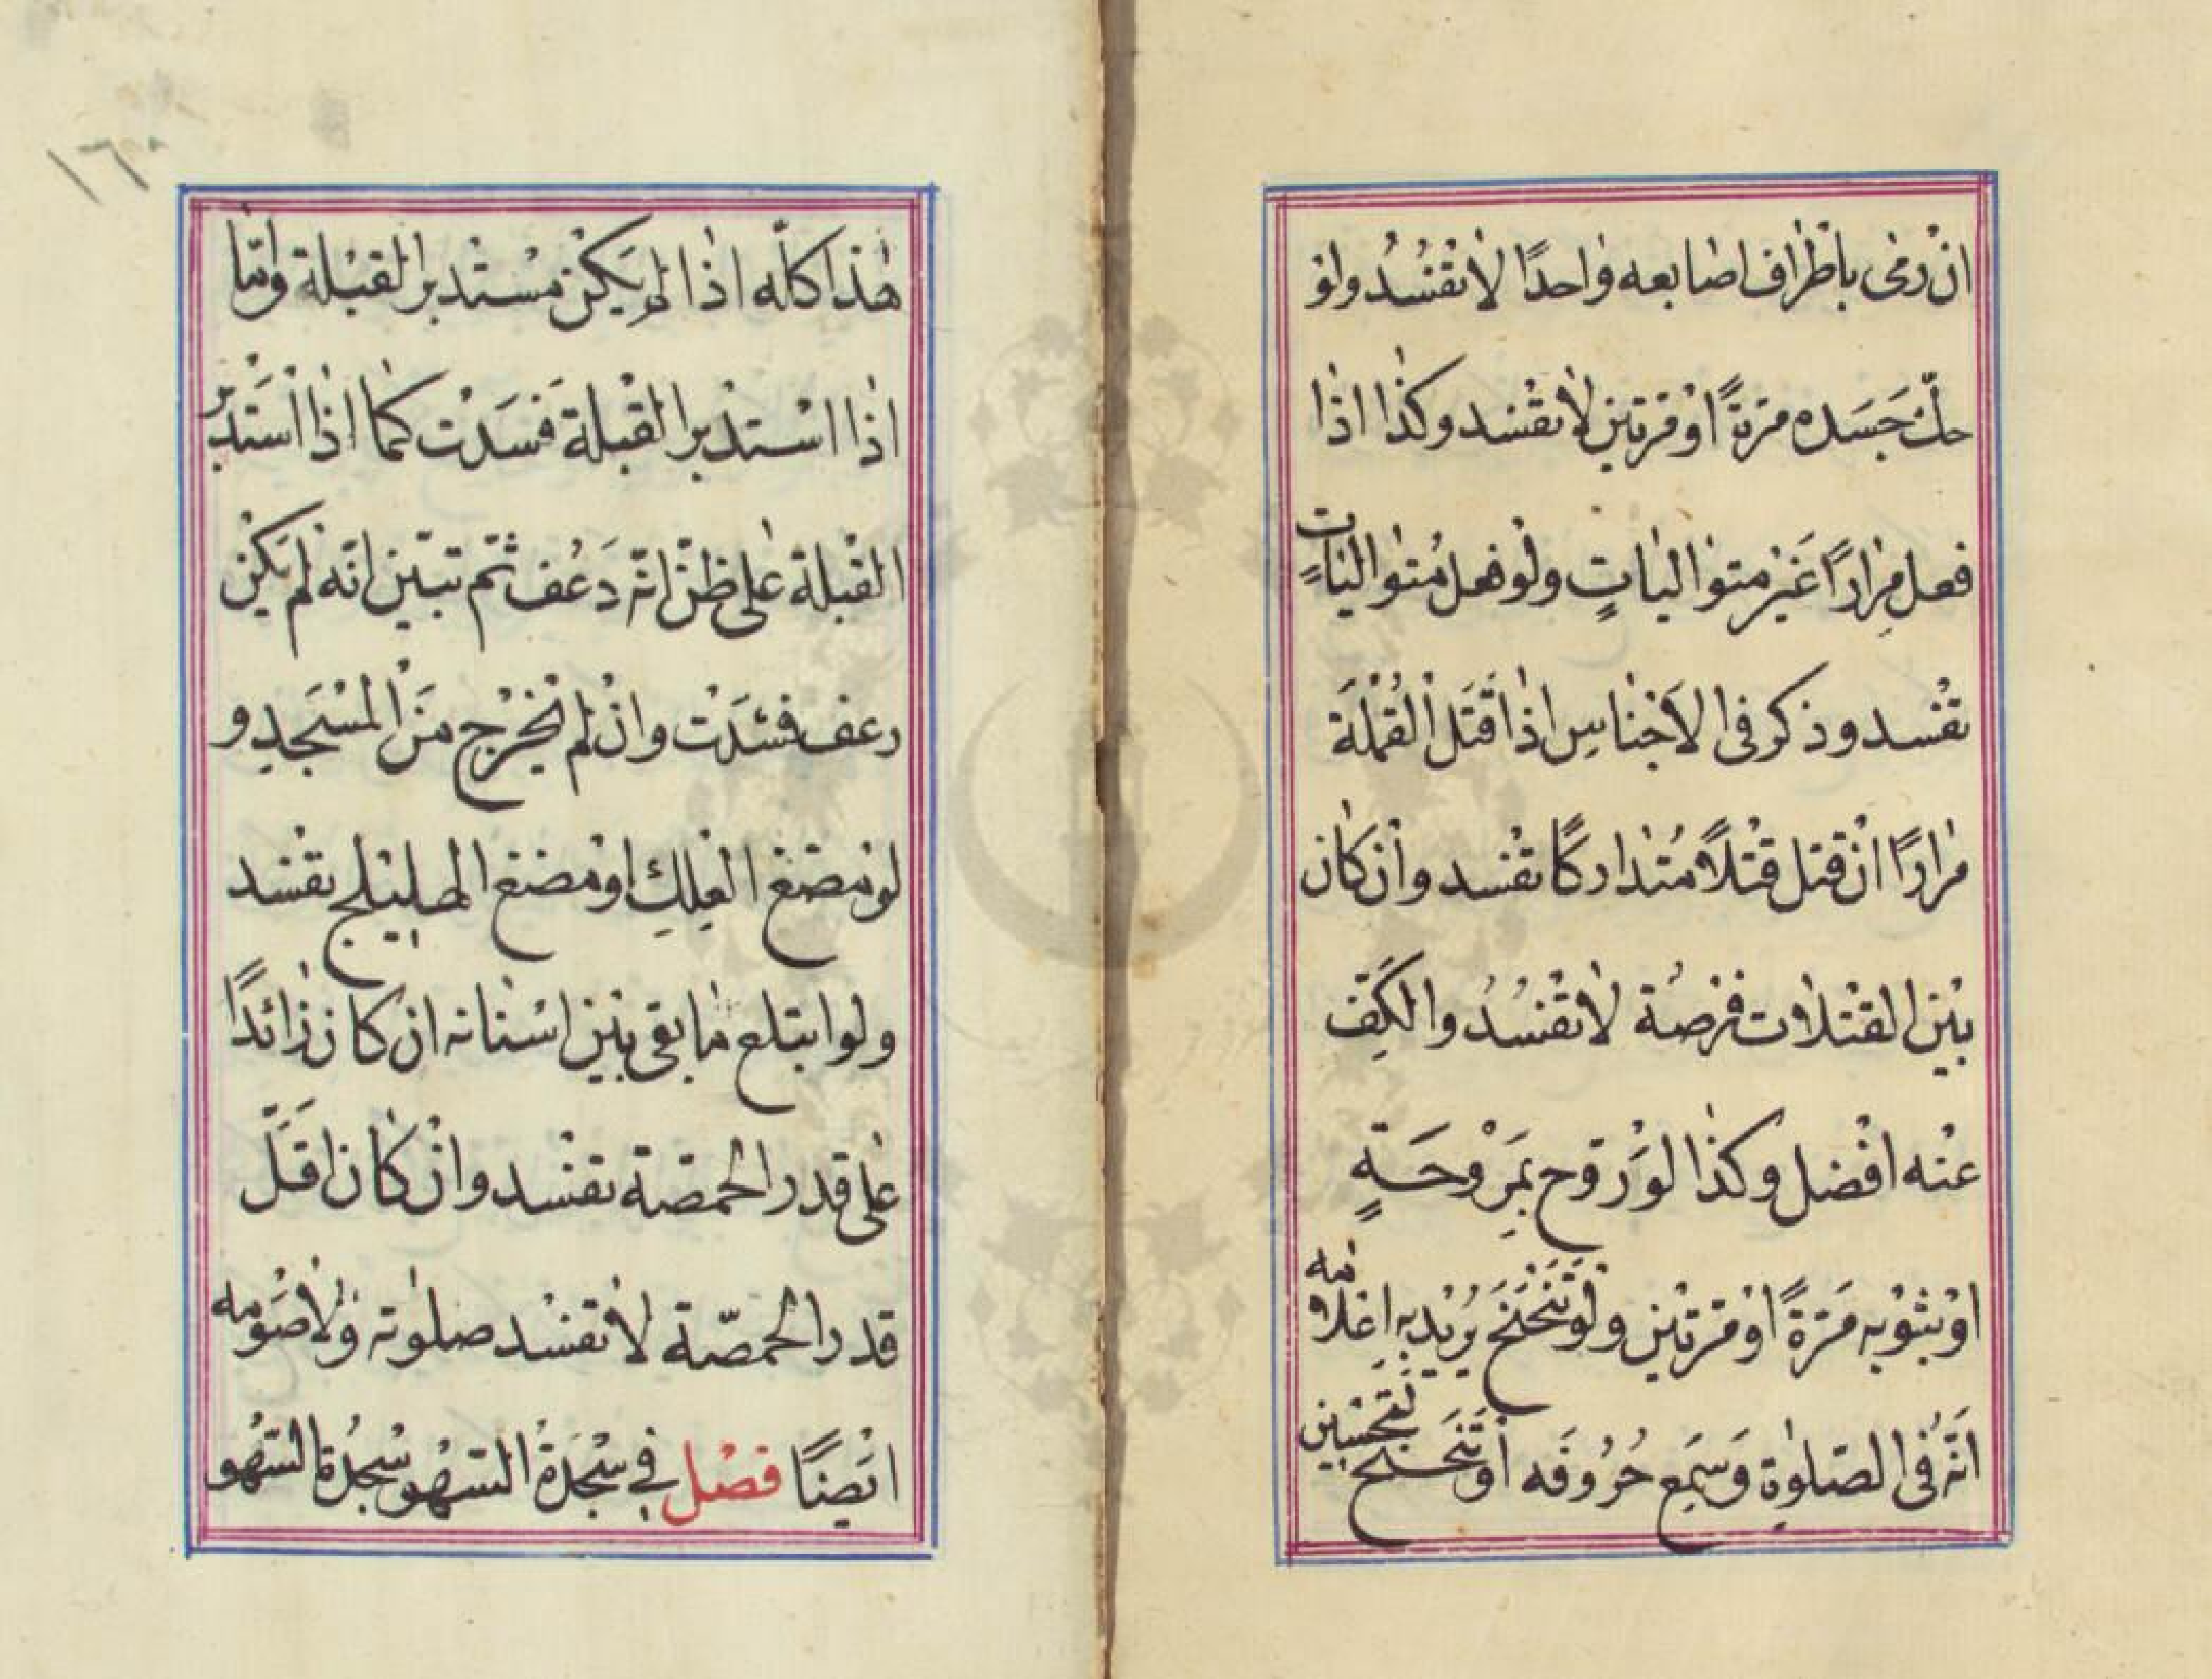 ان رمى باطراف اصابعه واحدًا لا تفسُدُ ولو
حكّ جَسَده مرّةً او مرّتين لا تفسد وكذا اذا
فعل مِرارًا غَيْر متواليات ولو فعل مُتواليات
تفسد وذكر فى الاجناس اذا قَتَل القُمْلَةَ
مرارًا ان قتل قتْلاً مُتداركًا تفسد وان كان
بين القتلات فرصُة لا تفسُدُ والكَفّ
عنه افضل وكذا لو رَوّح بمَرْوحَةٍ
او بثوبه مَرّةً او مرّتين ولو تنَحْنَحَ يُريْد به اِعْلامه
انّهُ فى الصّلوٰة وَسَمِع حُرُوفَه أو تَنَحْنح لتحْسين
١٦٠
هٰذا كلّه اذا لم يَكنْ مسْتدبر القبْلة وامّا
اذا اسْتدبر القبْلة فسَدت كما اذا استَدْبر
القبْلة على ظنّ انّه رَعُف ثمّ تبيّن انّه لم يَكن
رعف فسَدَت وان لم تخْرُج منَ المسْجَدِ و
لو مضغ العِلِك او مضغ الهليلج تفسد
ولو ابتلع ما بقى بين اسْنانه ان كان زائدًا
على قدر الحمّصة تفسد وان كان اقَلّ
قدر الحمّصة لا تفسد صلوٰته ولا صَوْمه
ايْضًا فصْل في سجْدَة السّهْو سُجدُة السّهُو